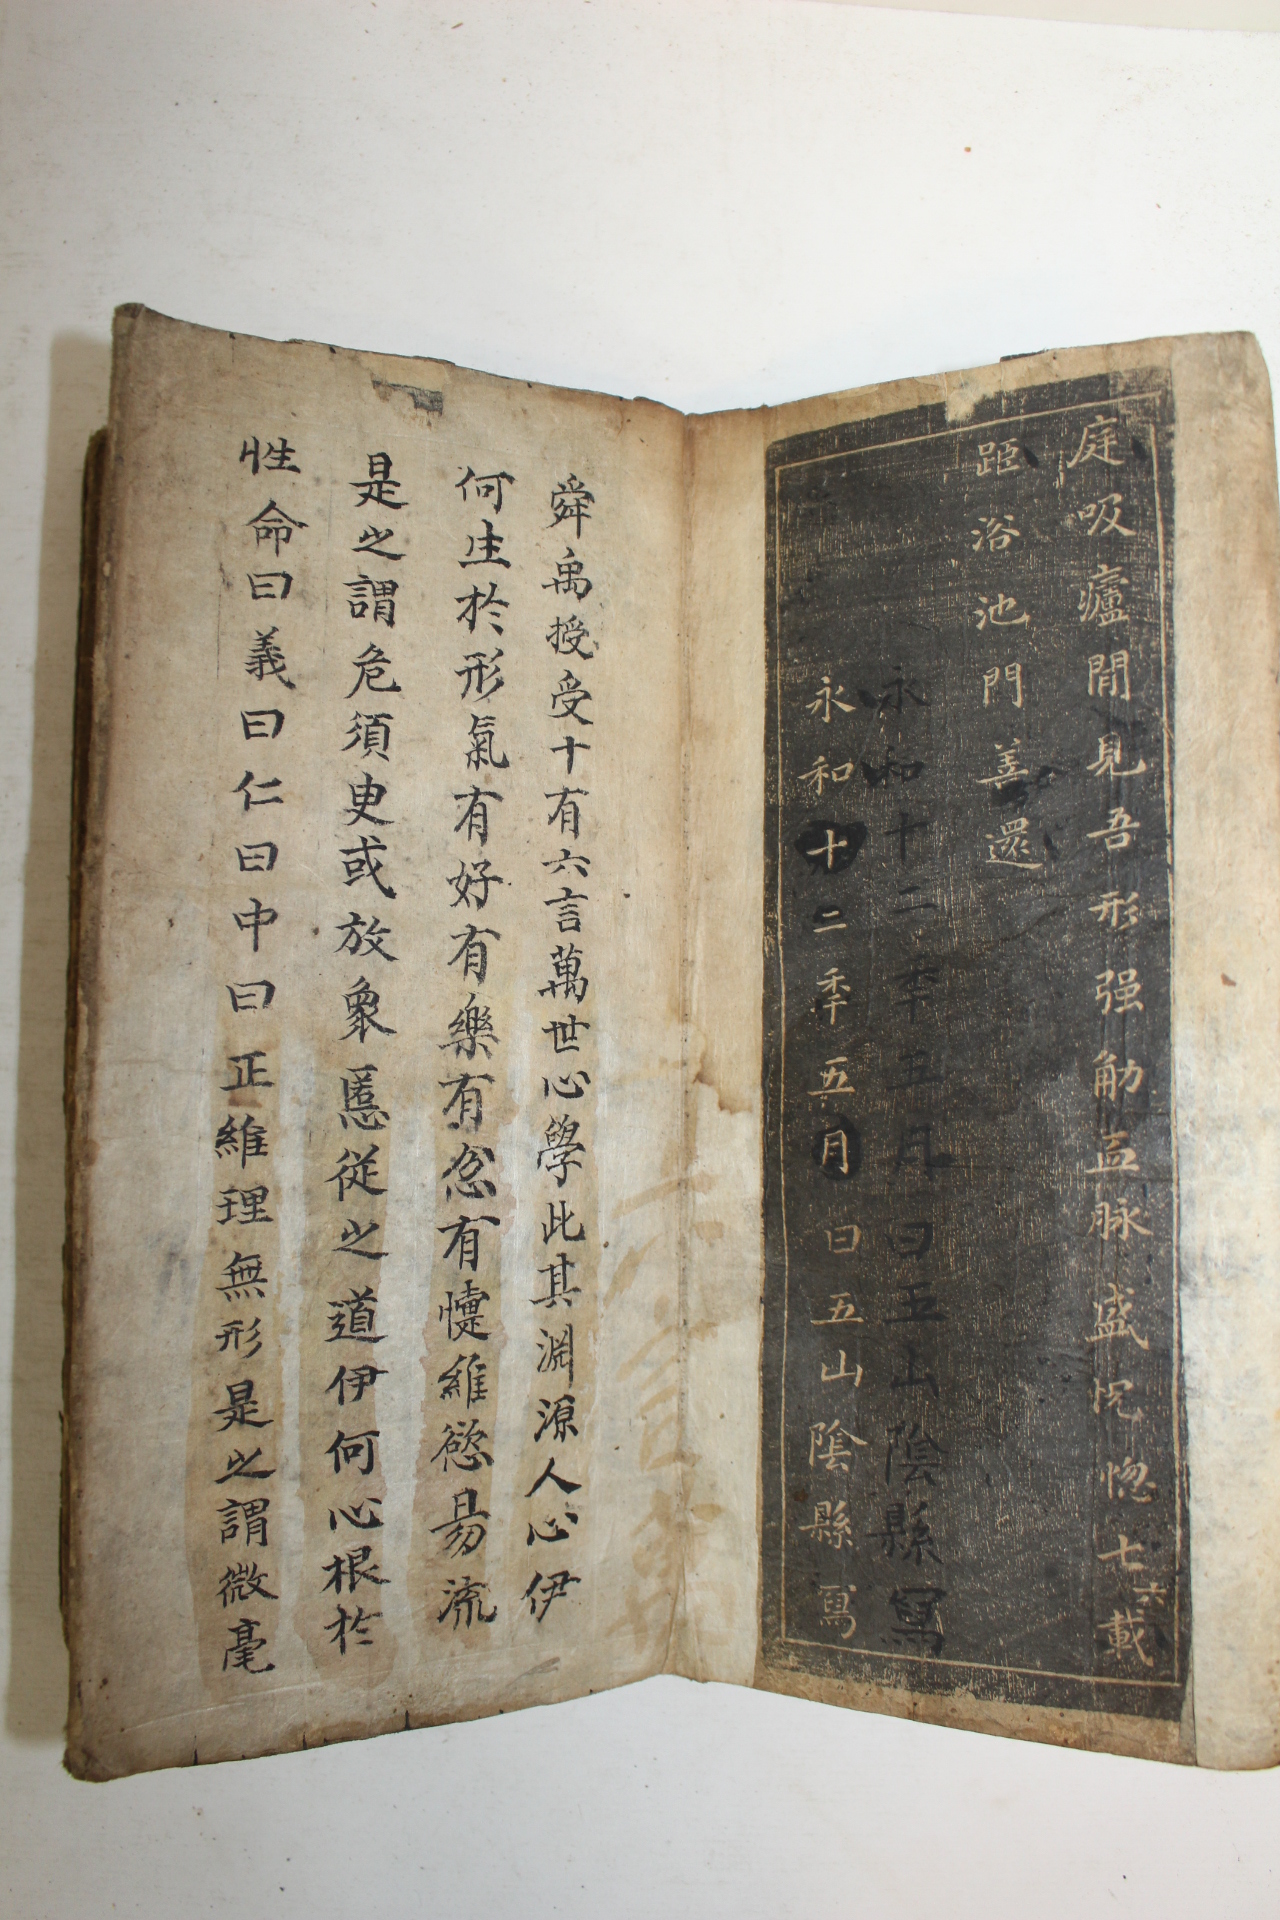 庭吸廬間見吾形强觔孟脉盛恍惚七六載
距浴池門善還
永和十二季五月日五山陰縣寫
永和十二季五月日五山陰縣寫
舜禹授受十有六言萬世心學此其淵源人心伊
何生於形氣有好有樂有忿有懥維慾易流
是之謂危須臾或放衆慝從之道伊何心根於
性命曰義曰仁曰中曰正維理無形是之謂微毫